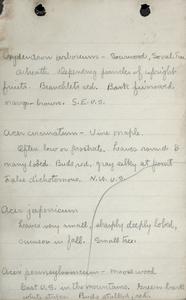 Oxydendrum arboreum - Sourwood, Sorrel Tree
wreath depending panicles of upright
fruits. Branchlets red. Bark furrowed
orange brown. S.E.U.S.
Acer circinatum - Vine maple.
Often low or prostrate. Leaves round &
many lobed. Buds red, gray silky at point
False dichotomous. N.W.U.S.
Acer japonicum
Leaves very small, sharply deeply lobed,
crimson in fall. Small tree.
Acer pennsylvanicum - moosewood
East U.S. in the mountains. Green bark
white stripes. Buds stalked, red.